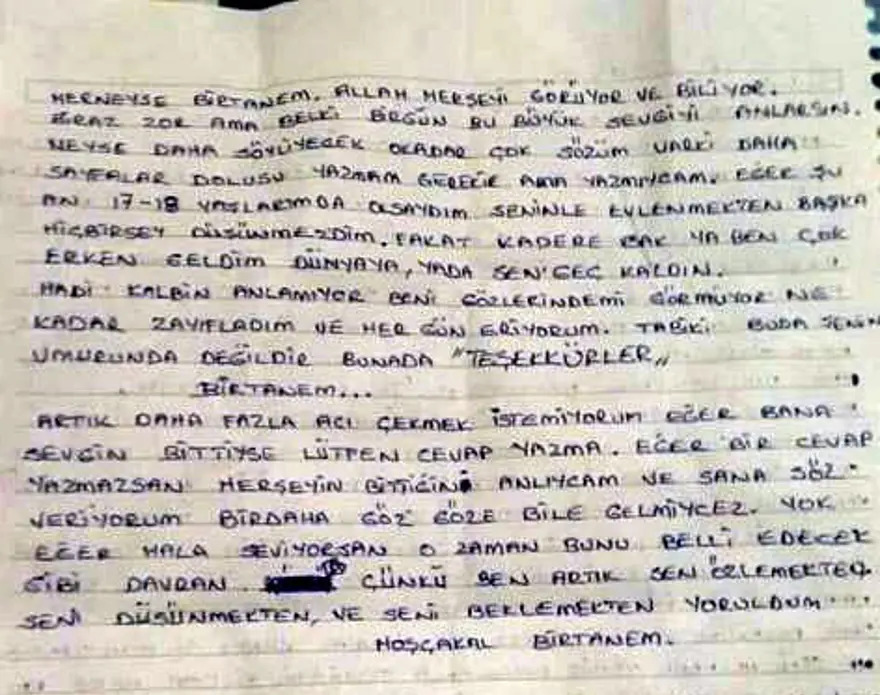 HERNEYSE BİRTANEM. ALLAH HERŞEYİ GÖRÜYOR VE BİLİYOR.
BİRAZ ZOR AMA BELKİ BİRGÜN BU BÜYÜK SEVGİYİ ANLARSIN.
NEYSE DAHA SÖYLİYECEK OKADAR ÇOK SÖZÜM VARKİ DAHA
SAYFALAR DOLUSU YAZMAM GEREKİR AMA YAZMIYCAM. EĞER ŞU
AN 17-18 YAŞLARIMDA OLSAYDIM SENİNLE EVLENMEKTEN BAŞKA
HİÇBİRŞEY DÜŞÜNMEZDİM. FAKAT KADERE BAK YA BEN ÇOK
ERKEN GELDİM DÜNYAYA, YADA SEN GEÇ KALDIN.
HADİ KALBİN ANLAMIYOR BENİ GÖZLERİNDEMİ GÖRMÜYOR NE
KADAR ZAYIFLADIM VE HER GÜN ERİYORUM. TABİKİ BUDA SENİN
UMURUNDA DEĞİLDİR BUNADA "TEŞEKKÜRLER"
BİRTANEM...
ARTIK DAHA FAZLA ACI ÇEKMEK İSTEMİYORUM EĞER BANA
SEVGİN BİTTİYSE LÜTFEN CEVAP YAZMA. EĞER BİR CEVAP
YAZMAZSAN HERŞEYİN BİTTİĞİNİ ANLIYCAM VE SANA SÖZ
VERİYORUM BİRDAHA GÖZ GÖZE BİLE GELMİYCEZ. YOK
EĞER HALA SEVİYORSAN O ZAMAN BUNU BELLİ EDECEK
GİBİ DAVRAN ÇÜNKÜ BEN ARTIK SENİ ÖZLEMEKTEN
SENİ DÜŞÜNMEKTEN, VE SENİ BEKLEMEKTEN YORULDUM
HOŞÇAKAL BİRTANEM.